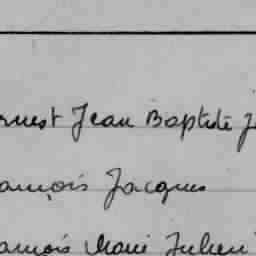 rnest Jean Baptiste J
ançois Jacques
ançois Marie Julien